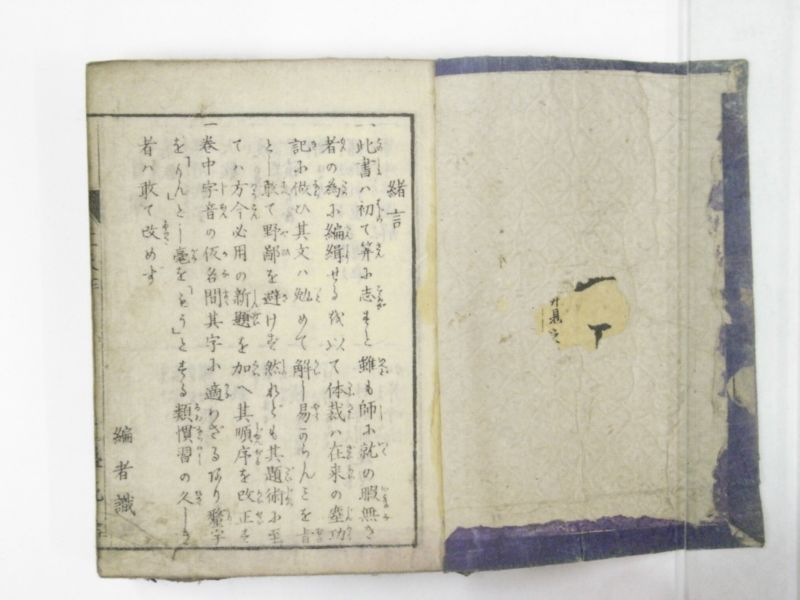 緒言
一此書ハ初て算に志すと雖も師に就の暇無き
者の為に編緝せるを以て体裁ハ在来の塵功
記に倣ひ其文ハ勉めて解し易からんことを旨
とし敢て野鄙を避けず然れども其題術に至
てハ方今必用の新題を加へ其順序を改正す
一巻中字音の仮名間其字に適わざるあり釐字
を「りん」とし毫を「もう」とする類慣習の久しき
者ハ敢て改めず
編者識